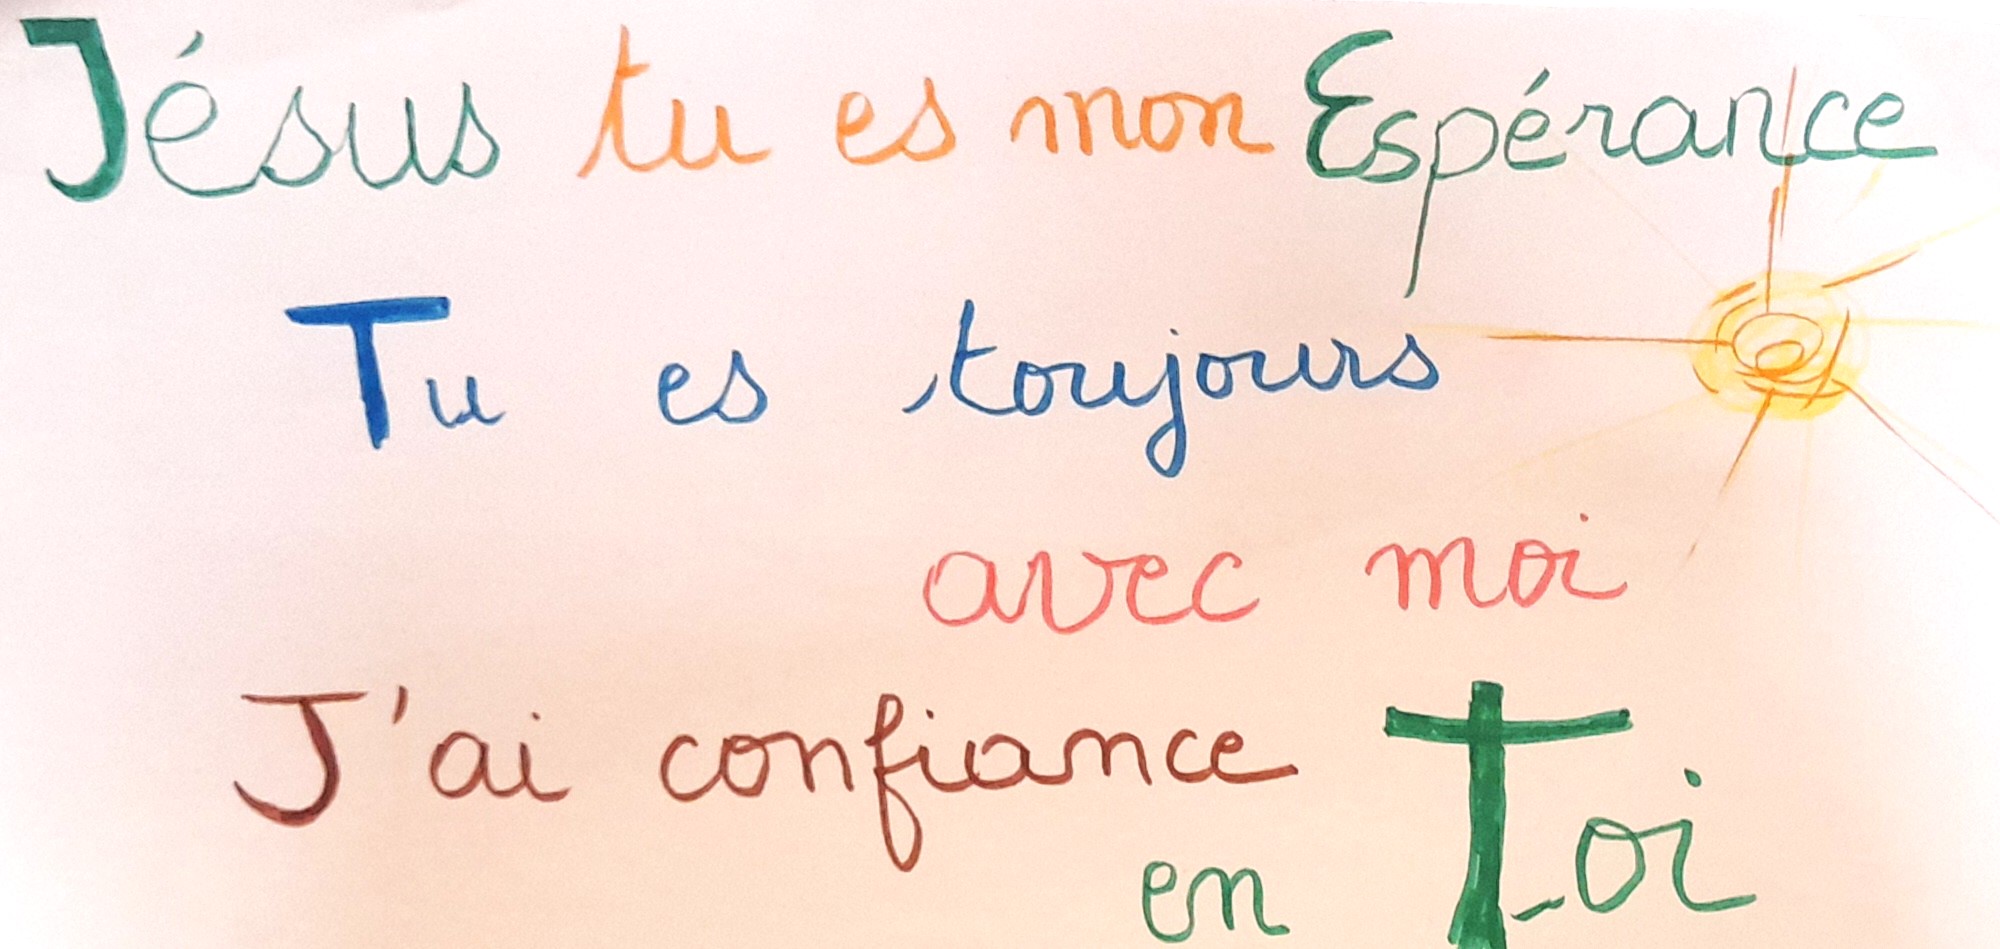 Jésus tu es mon Espérance
Tu es toujours
avec moi
J'ai confiance
en Toi